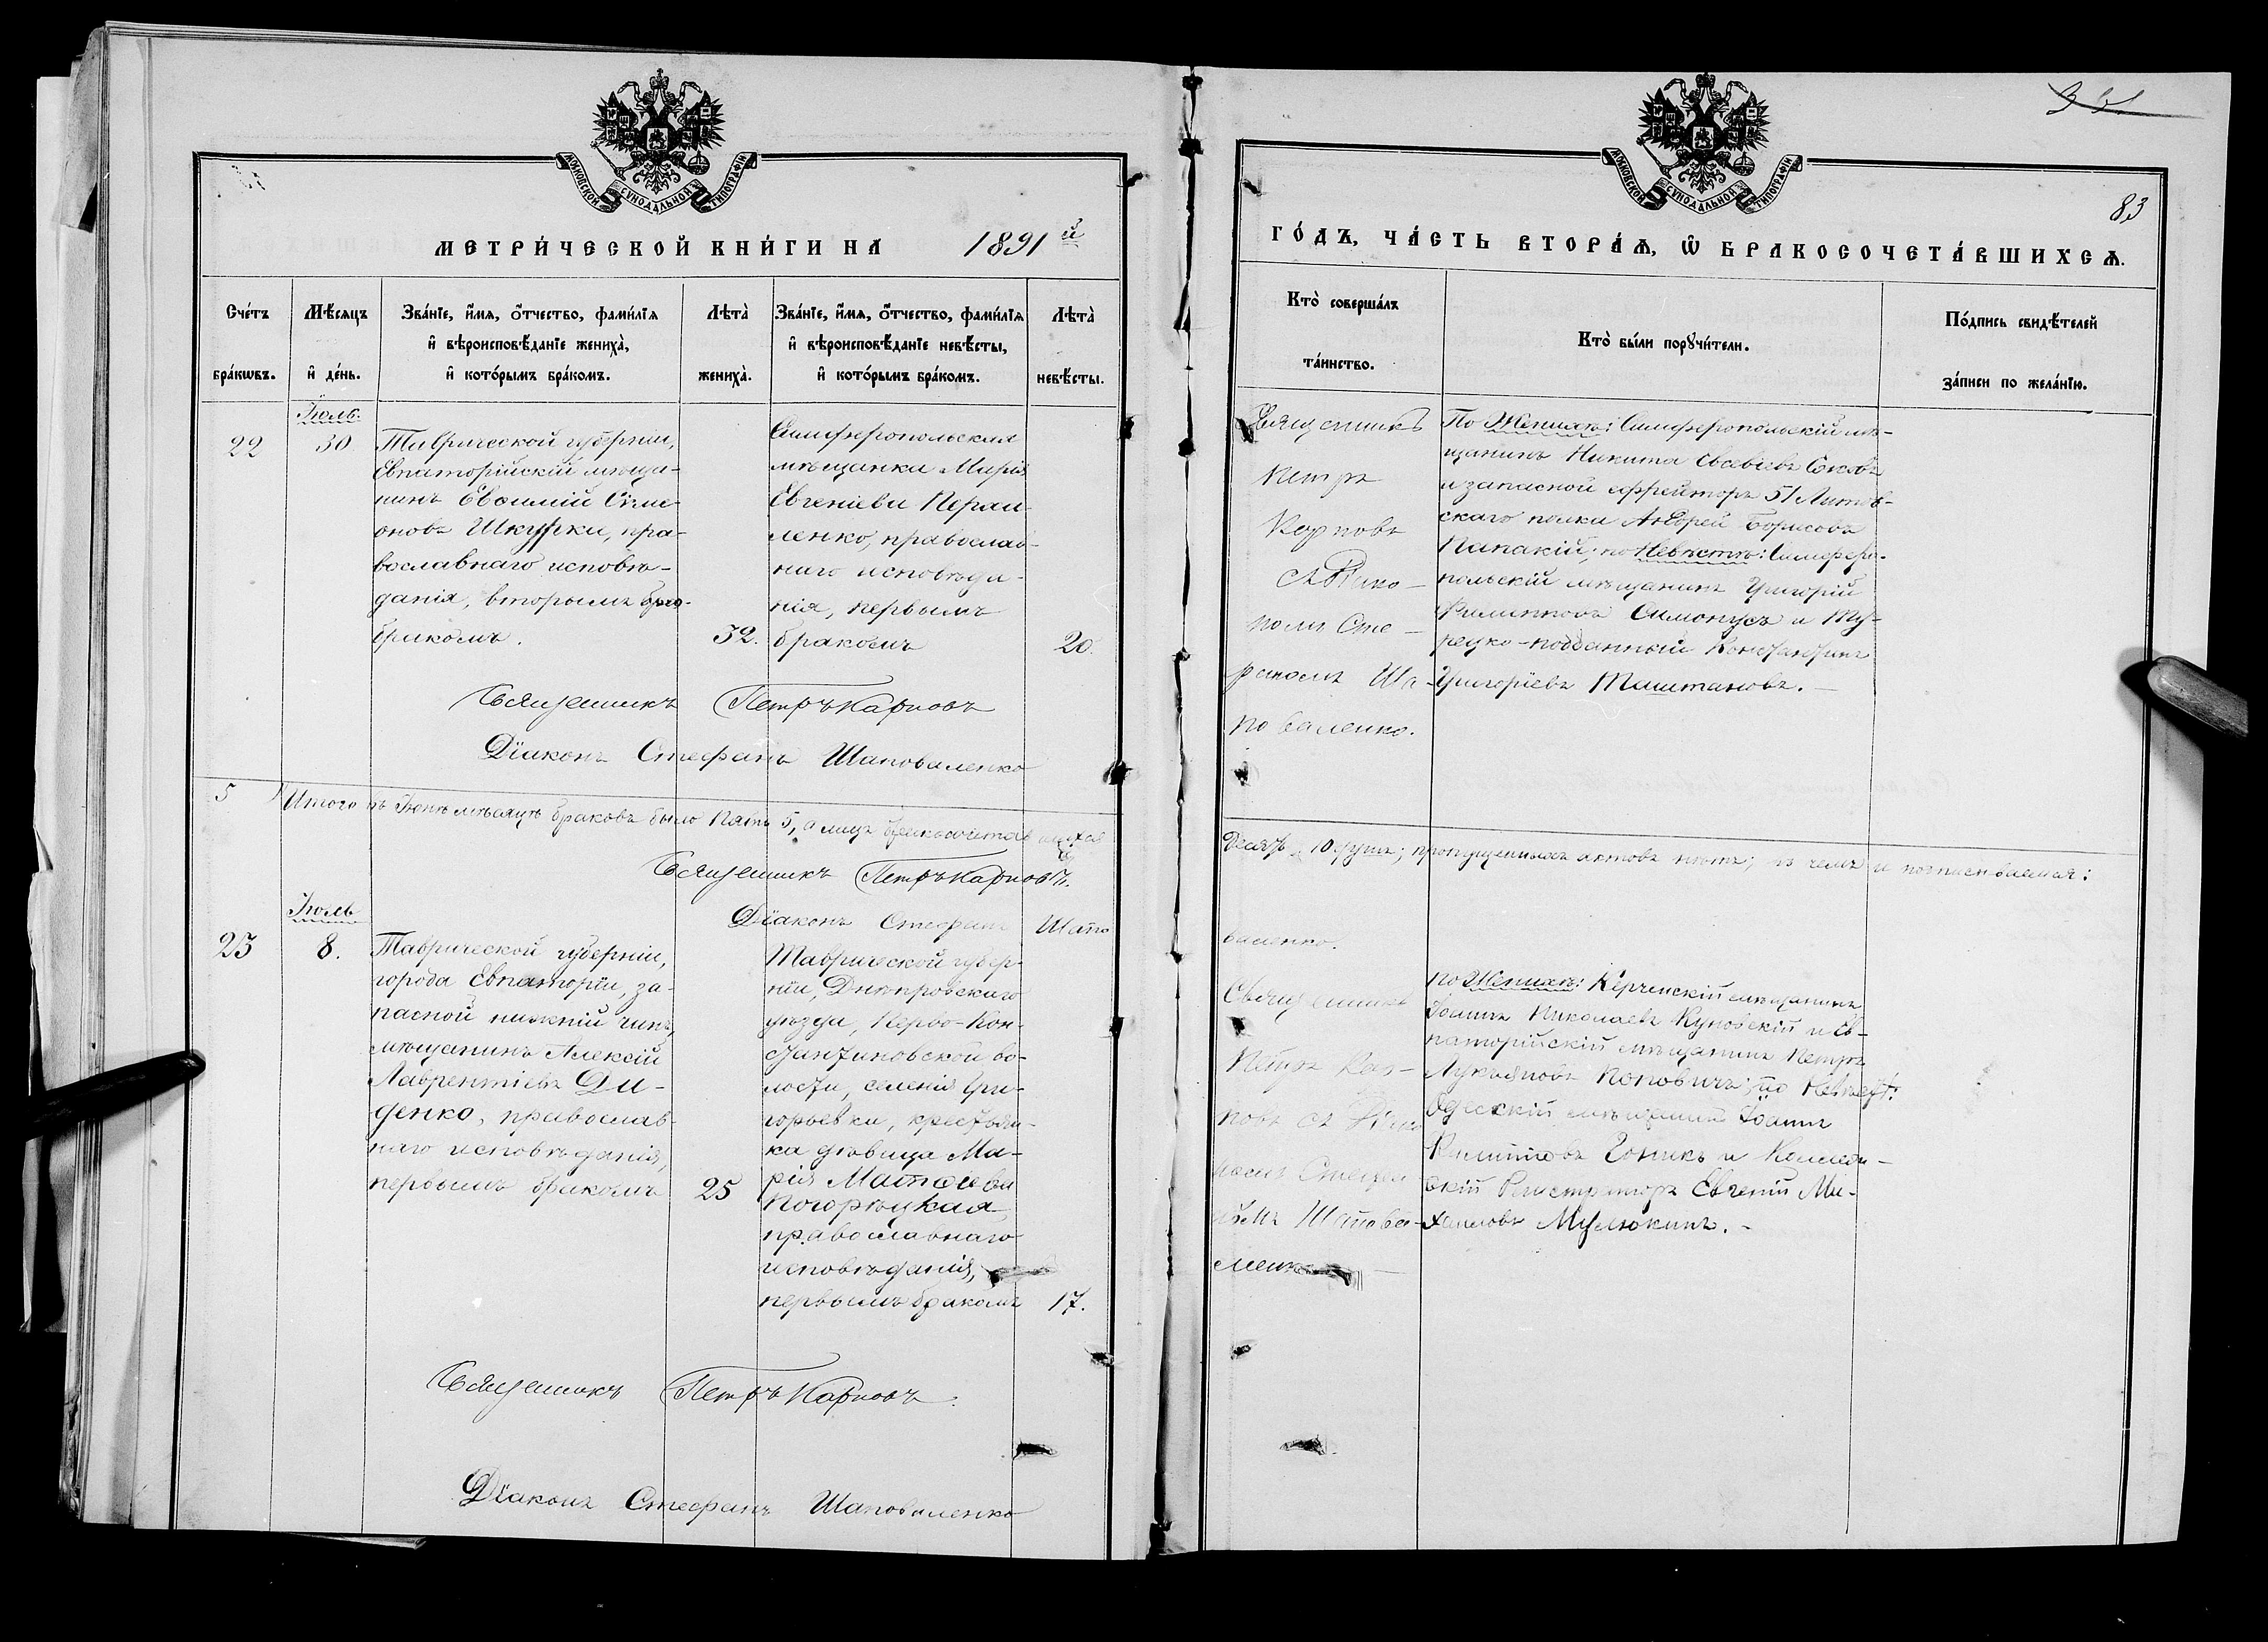 МОСКОВСКОЙ СУНОДАЛЬНОЙ ТИПОГРАФІИ
МЕТРИ́ЧЕСКОЙ КНИ́ГИ НА 1891й
Сче́тъ бра́кѡвъ.
Мѣ́сяцъ и҆ де́нь.
Зва́нїе, и҆́мя, о҆́тчество, фами́лїя
и҆ вѣроисповѣ́данїе жениха̀,
и҆ кото́рымъ бра́комъ.
Лѣта̀ жениха̀.
Зва́нїе, и҆́мя, о҆́тчество, фами́лїя
и҆ вѣроисповѣ́данїе невѣ́сты,
и҆ кото́рымъ бра́комъ.
Лѣта̀ невѣ́сты.
22
30
Таврической губерніи,
Евпаторійскій мѣща-
нинъ Евѳимій Симе-
оновъ Шкурки, пра-
вославнаго исповѣ-
данія, вторымъ
бракомъ.
32.
Симферопольская
мѣщанка Марія
Евгеніева
ленко, православ-
наго исповѣда-
нія, первымъ
бракомъ
20.
Священникъ Петръ Карповъ
Діаконъ Стефанъ Шаповаленко
5 Итого въ Іюнѣ мѣсяцѣ браковъ было пять 5, а лицъ бракосочетавшихся
Священникъ Петръ Карповъ.
Діаконъ Стефанъ Шапо
Іюль
23
8.
Таврической губерніи,
города Евпаторіи, за-
пасной нижній чинъ,
мѣщанинъ Алексій
Лаврентіевъ Ди-
денко, православ-
наго исповѣданія,
первымъ бракомъ
25
Таврической губер-
ніи, Днѣпровскаго
уѣзда, Перво-Кон-
стантиновской во-
лости, селенія Гри-
горьевки, крестьян-
ка дѣвица Ма-
рія Матѳіева
Погорѣцкая,
православнаго
исповѣданія,
первымъ бракомъ
17.
Священникъ Петръ Карповъ.
Діаконъ Стефанъ Шаповаленко
МОСКОВСКОЙ СУНОДАЛЬНОЙ ТИПОГРАФІИ
83
ГО́ДЪ, ЧА́СТЬ ВТОРА́Ѧ, Ѡ҆ БРАКОСОЧЕТА́ВШИХСѦ.
Кто̀ соверша́лъ
та́инство.
Кто̀ бы́ли порꙋчи́тели.
По́дпись свидѣ́телей
за́писи по жела́нїю.
Священникъ
Петръ
Карповъ
съ Діако-
номъ Сте-
фаномъ Ша-
поваленко.
По Женихѣ: Симферопольскій мѣ-
щанинъ Никита Евсевіевъ
и запасной ефрейторъ 51 Литов-
скаго полка Андрей Борисовъ
Папакій; по Невѣстѣ: Симферо-
польскій мѣщанинъ Григорій
Филипповъ Симонусъ и Ту-
рецко-подданный Константинъ
Григоріевъ Таштановъ.
десять 10 душъ; пропущенныхъ актовъ нѣтъ; въ чемъ и подписываемся:
валенко.
Священникъ
Петръ Кар-
повъ съ Діако
номъ Стефа
номъ Шапова-
ленко
по Женихѣ: Керченскій мѣщанинъ
Іоаннъ Николаевъ Куновскій и Ев-
паторійскій мѣщанинъ Петръ
Лукьяновъ Поповичъ; по Невѣстѣ:
Одесскій мѣщанинъ Іоаннъ
Филипповъ Гоникъ и Коллеж-
скій Регистраторъ Евгеній Ми-
хаиловъ Мулюкинъ.